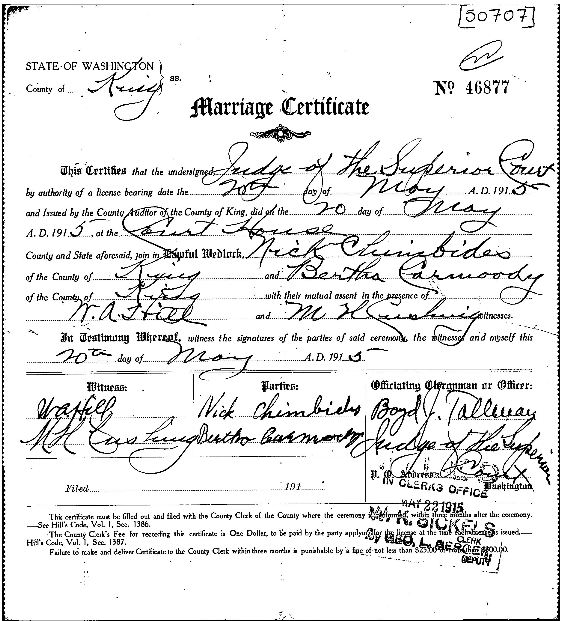 [50707]
STATE OF WASHINGTON
County of King ss.
No 46877
Marriage Certificate
This Certifies that the undersigned, Judge of the Superior Court
by authority of a license bearing date the 20th day of May A. D. 1915
and Issued by the County Auditor of the County of King, did on the 20 day of May
A. D. 1915 at the Court House
County and State aforesaid, join in Lawful Wedlock, Nick Chimbides
of the County of King and Bertha Carmoody
of the County of King with their mutual assent in the presence of
W. A. Hill and M H Cushing witnesses.
In Testimony Whereof, witness the signatures of the parties of said ceremony, the witnesses and myself this
20th day of May A. D. 1915
Witness: Parties: Officiating Clergyman or Officer:
WA Hill Nick Chimbides Boyd J. Tallman
M H Cushing Bertha Carmody Judge of the Superior
Court
P. O. Address Washington
IN CLERKS OFFICE
Filed 191
MAY 22 1915
This certificate must be filled out and filed with the County Clerk of the County where the ceremony is performed, within three months after the ceremony.
—See Hill's Code, Vol. 1, Sec. 1386.
W. K. SICKELS
CLERK
The County Clerk's Fee for recording this certificate is One Dollar, to be paid by the party applying for the license at the time such license is issued.—
Hill's Code, Vol. 1, Sec. 1387.
By GEO. L.
DEPUTY
Failure to make and deliver Certificate to the County Clerk within three months is punishable by a fine of not less than $25.00 or more than $300.00.